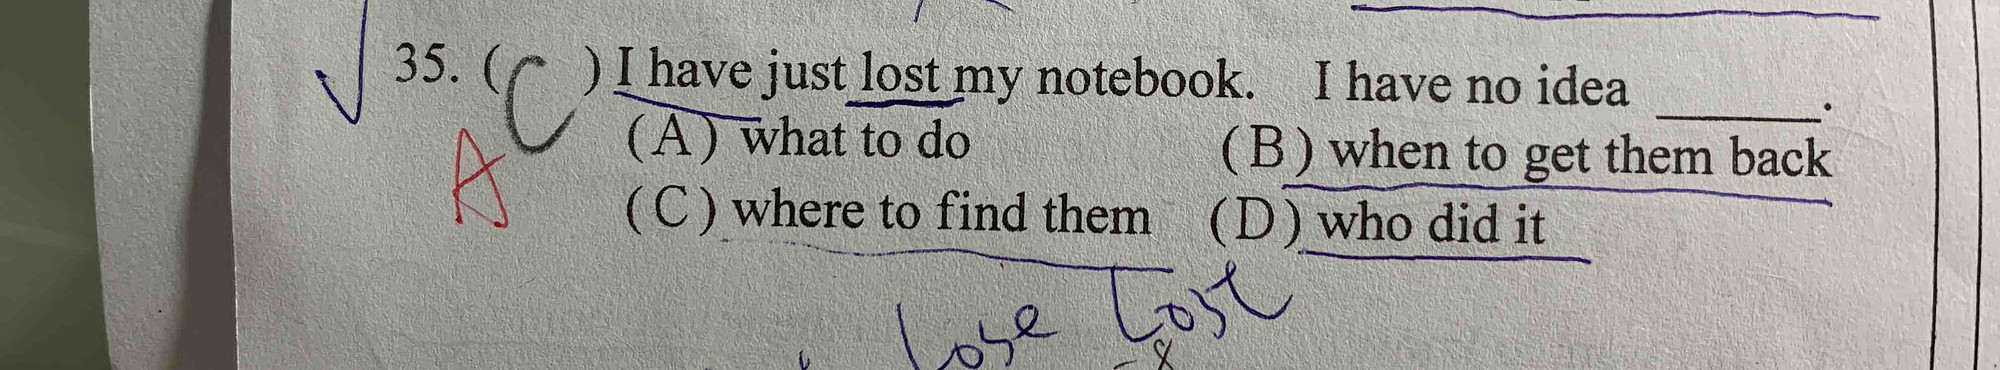 35. ( C ) I have just lost my notebook. I have no idea ______.
A
(A) what to do (B) when to get them back
(C) where to find them (D) who did it
lose lost